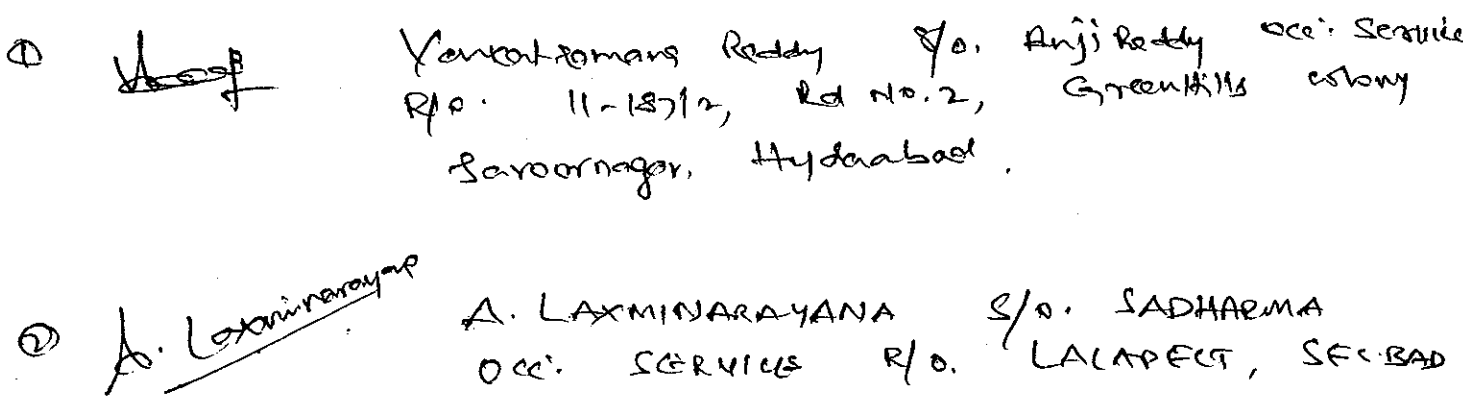 ① Venkatramana Reddy S/o. Anji Reddy occ: Service
R/o. 11-187/2, Rd No.2, GreenHills colony
Saroornagar, Hyderabad.
② A. Laxminarayana A. LAXMINARAYANA S/o. SADHARMA
Occ: SERVICE R/o. LALAPEET, SEC.BAD